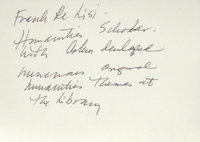 Frank De Lisi -
Humanities Scholar.
with developed
numerous original
humanities Themes at
The Library